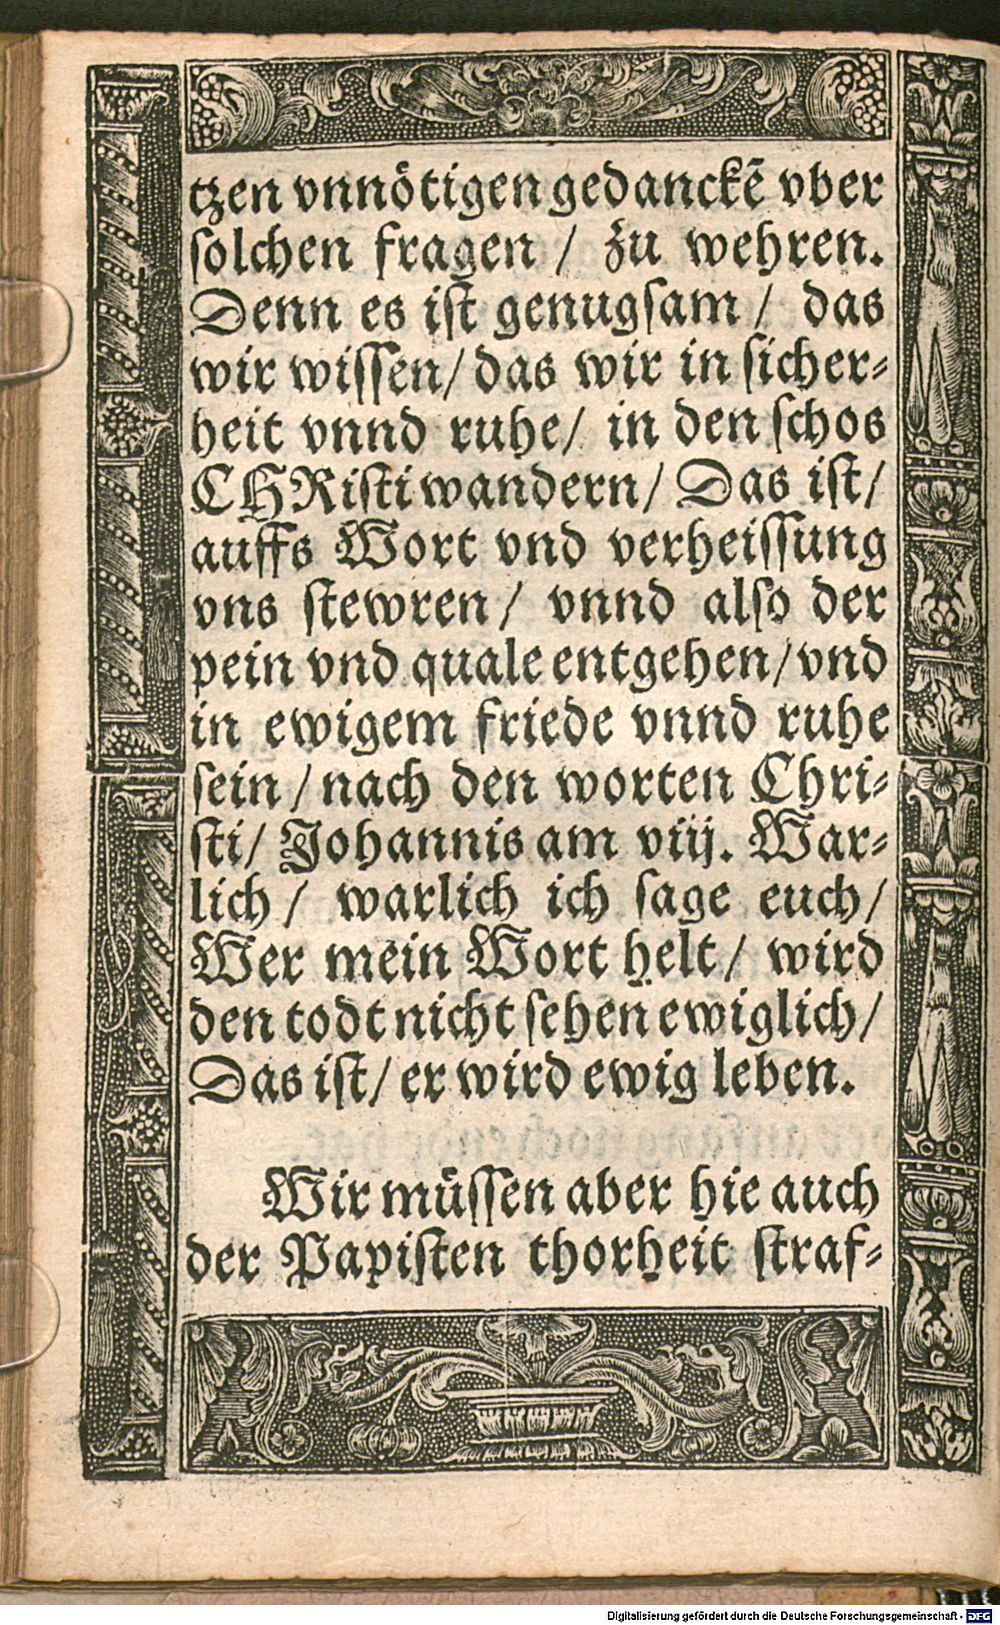 tzen vnnötigen gedanckē vber
ſolchen fragen / zu wehren.
Denn es iſt genugſam / das
wir wiſſen / das wir in ſicher⸗
heit vnnd ruhe / in den ſchos
CHRiſti wandern / Das iſt /
auffs Wort vnd verheiſſung
vns ſtewren / vnnd alſo der
pein vnd quale entgehen / vnd
in ewigem friede vnnd ruhe
ſein / nach den worten Chri⸗
ſti / Johannis am viij. War⸗
lich / warlich ich ſage euch /
Wer mein Wort helt / wird
den todt nicht ſehen ewiglich /
Das iſt / er wird ewig leben.
Wir müſſen aber hie auch
der Papiſten thorheit ſtraf⸗
Digitalisierung gefördert durch die Deutsche Forschungsgemeinschaft - DFG